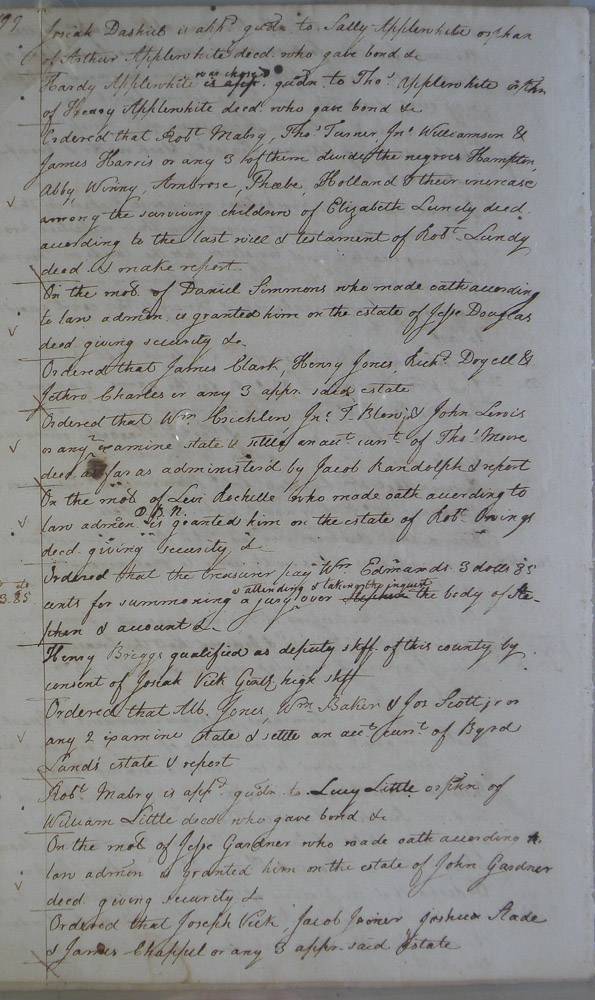 97
Josiah Dashiel is appd. gudn to Sally Applewhite orphan
of Arthur Applewhite decd. who gave bond &c
Hardy Applewhite is appr. was chosed gudn. to Thos. Applewhite orphn
of Henry Applewhite decd. who gave bond &c
Ordered that Robt. Mabry, Thos. Turner, Jno. Williamson &
James Harris or any 3 of them divide the negroes Hampton,
Abby, Winny, Ambrose, Phœbe, Holland & their increase
among the surviving children of Elizabeth Lundy decd.
according to the last will & testament of Robt. Lundy
decd & make report
On the mot. of Daniel Simmons who made oath according
to law admon. is granted him on the estate of Jesse Douglas
decd giving security &c.
Ordered that James Clark, Henry Jones, Richd. Doyell &
Jethro Charles or any 3 appr. said estate
Ordered that Wm. Jno. T. Blow, & John Lewis
or any 2 examine state & settle an act. curt. of Thos. Moore
decd as far as administer'd by Jacob Randolph & report
On the mot. of Levi Rochelle who made oath according to
law admon D.B.N. is granted him on the estate of Robt. Owings
decd. giving security, &
Ordered that the treasurer pay Wm. Edmands 3 dolls 85
3.85
cents for summoning & attending & taking the inquest a jury over Stephen the body of Ste-
phen & account &.
Henry Briggs qualified as deputy shff. of this county by
consent of Josiah Vick high shff
Ordered that Alb. Jones, Wm. Baker & Jos Scott jr or
any 2 examine state & settle an act. curt. of Byrd
Land's estate & report
Robt. Mabry is appd. gudn. to Lucy Little orphn of
William Little decd who gave bond &c
On the mot of Jesse Gardner who made oath according to
law admon is granted him on the estate of John Gardner
decd giving security &
Ordered that Joseph Vick Jacob Joiner Joshua
& James Chappel or any 3 appr. said Estate